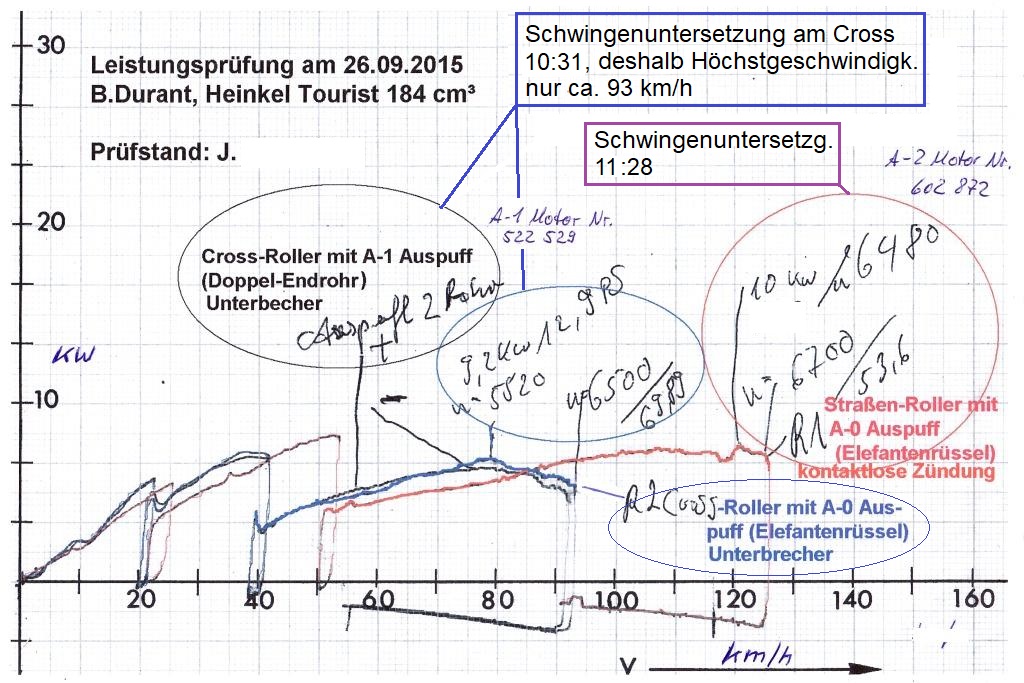 30
Leistungsprüfung am 26.09.2015
B.Durant, Heinkel Tourist 184 cm³
Prüfstand: J.
Schwingenuntersetzung am Cross
10:31, deshalb Höchstgeschwindigk.
nur ca. 93 km/h
Schwingenuntersetzg.
11:28
A-2 Motor Nr.
602 872
20
A-1 Motor Nr.
522 529
Cross-Roller mit A-1 Auspuff
(Doppel-Endrohr)
Unterbecher
Auspuff 2 Rohre
KW
9,2 KW / 12,9 PS
n=5520
n=6500/69,89
10 KW / n 6480
n= 6700/53,6
10
R1
Straßen-Roller mit
A-0 Auspuff
(Elefantenrüssel)
kontaktlose Zündung
R2 Cross-Roller mit A-0 Aus-
puff (Elefantenrüssel)
Unterbrecher
20 40 60 80 100 120 140 160
V km/h